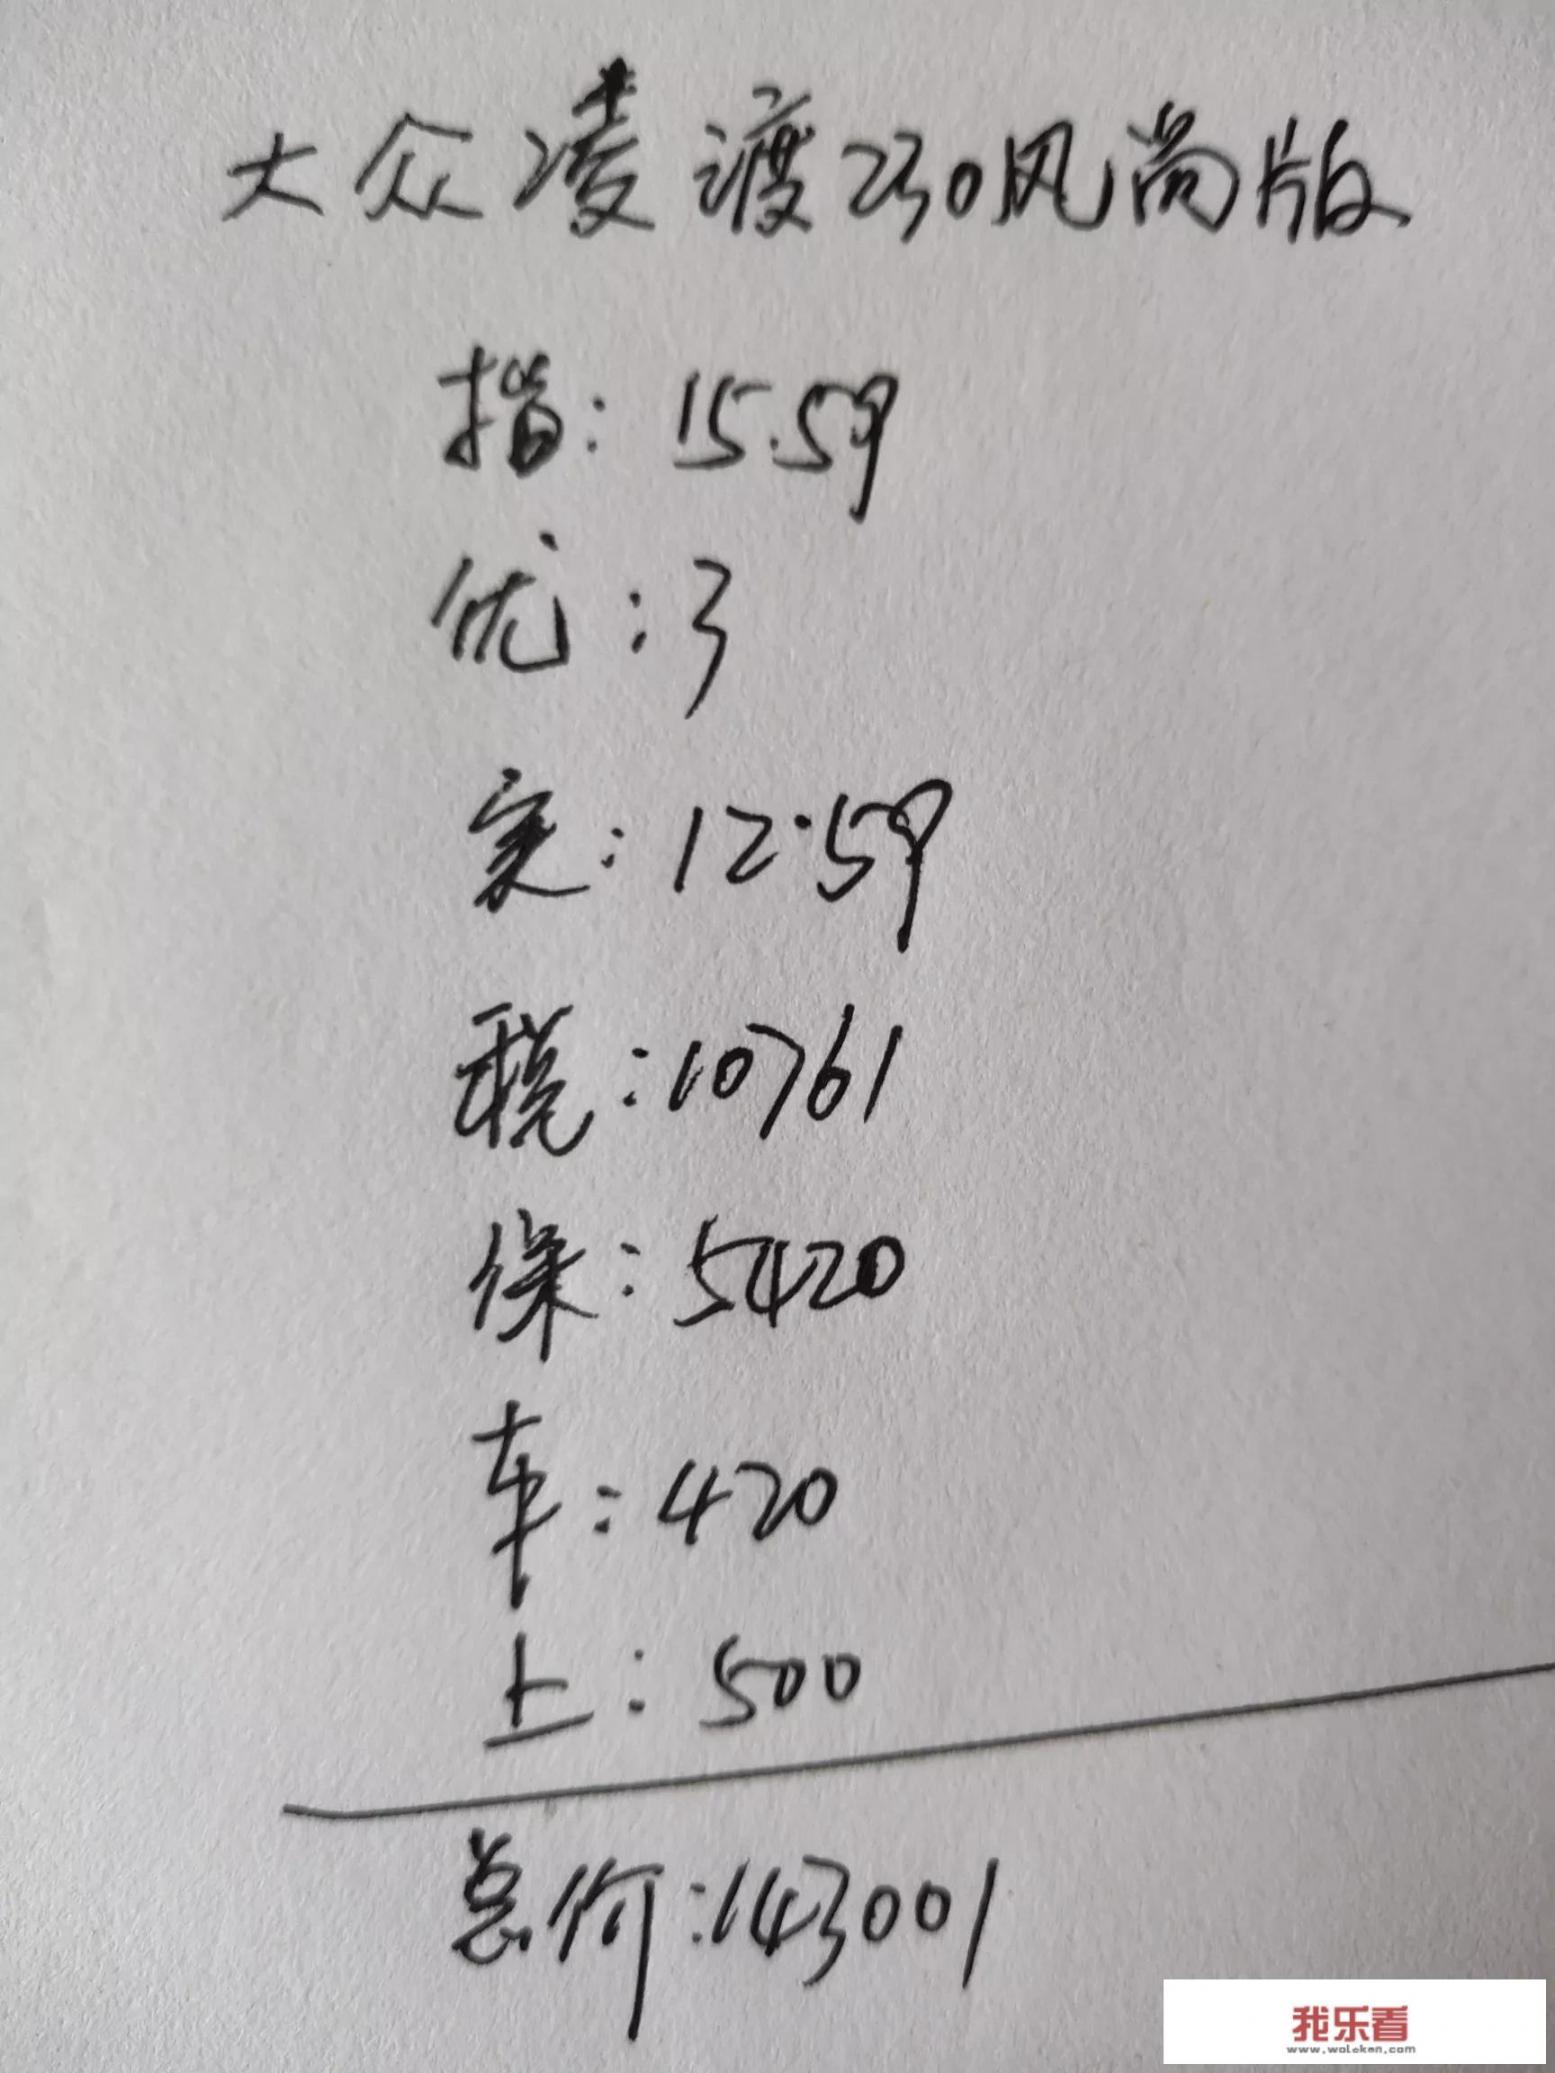 大众凌渡230风尚版
指：15.59
优：3
实：12.59
税：10761
保：5420
车：420
上：500
总价：143001
我乐看
www.woleken.com